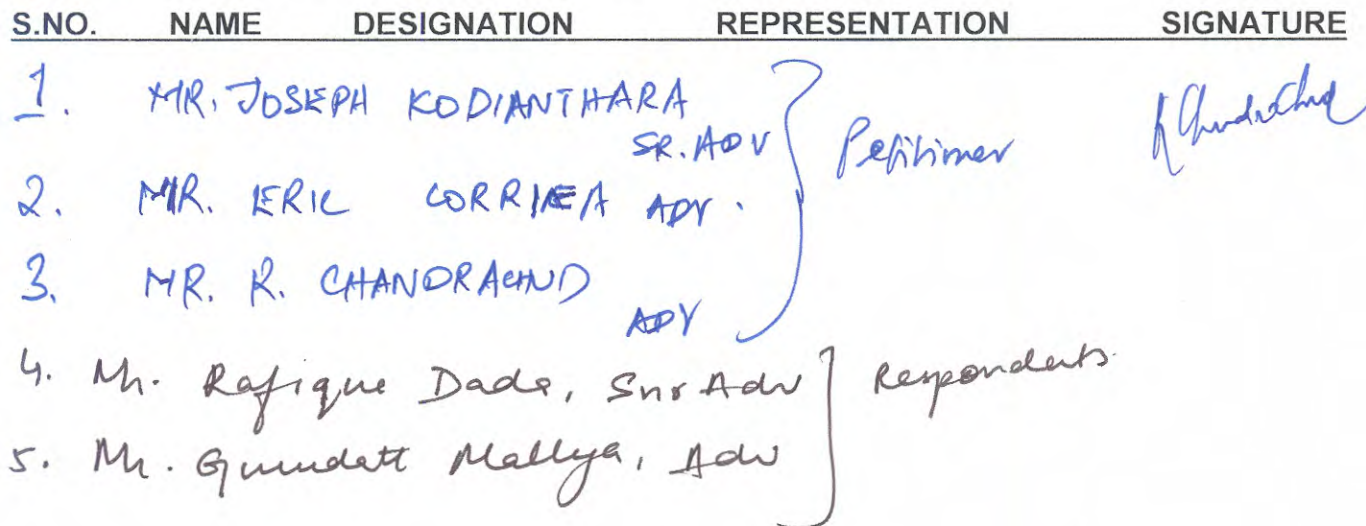 S.NO. NAME DESIGNATION REPRESENTATION SIGNATURE
1. MR. JOSEPH KODIANTHARA
SR. ADV Petitioner
2. MR. ERIC CORRIEA ADV.
3. MR. R. CHANDRACHUD
ADV
4. Mr. Rafique Dada, Snr Adv Respondents
5. Mr. Gurudatt Mallya, Adv